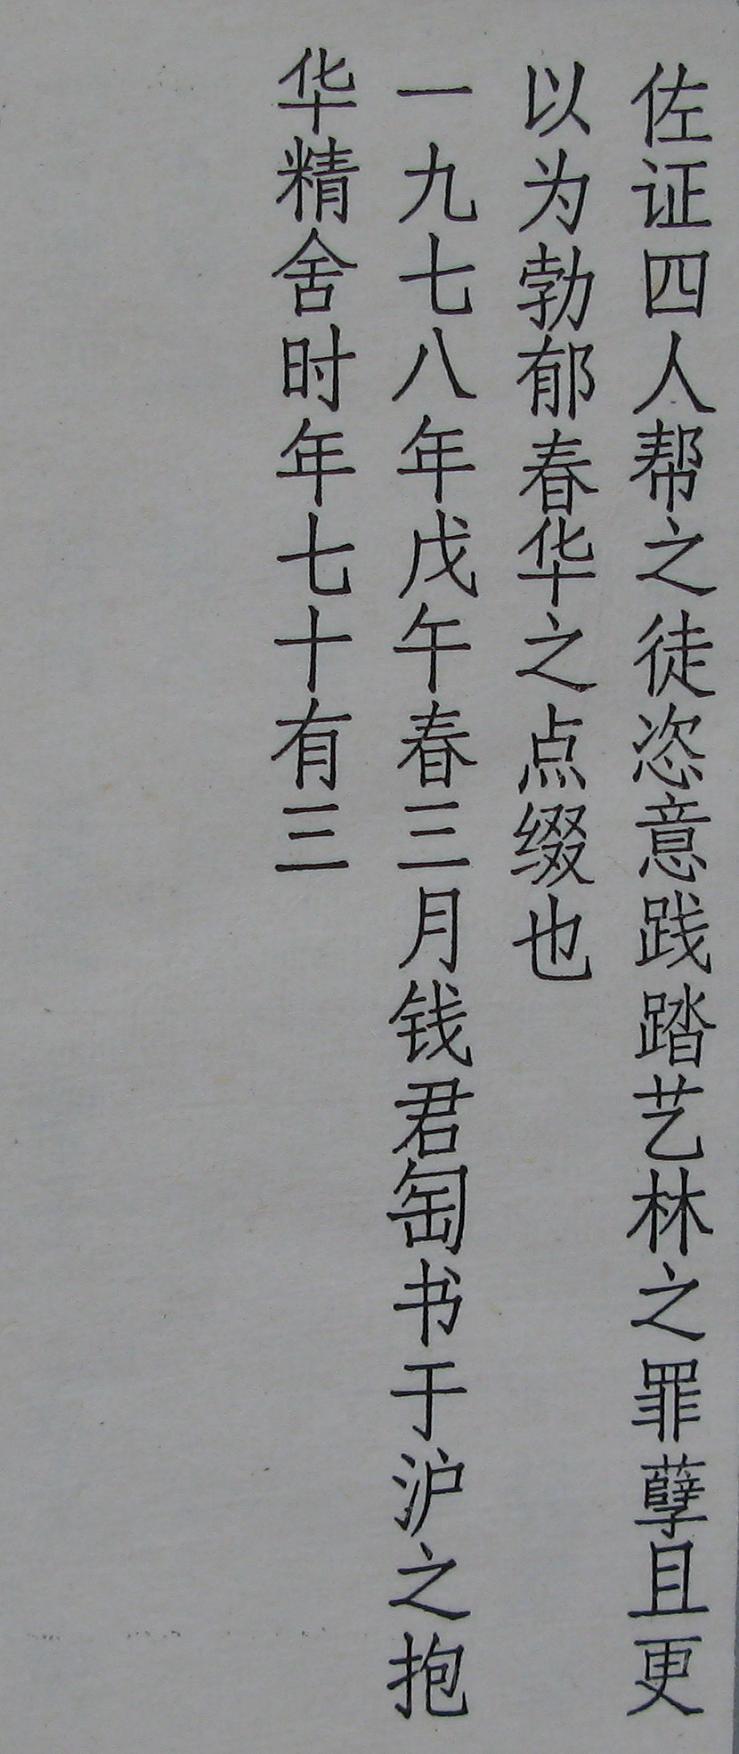 佐证四人帮之徒恣意践踏艺林之罪孽且更
以为勃郁春华之点缀也
一九七八年戊午春三月钱君匋书于沪之抱
华精舍时年七十有三